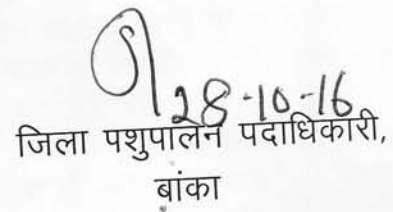 28-10-16
जिला पशुपालन पदाधिकारी,
बांका